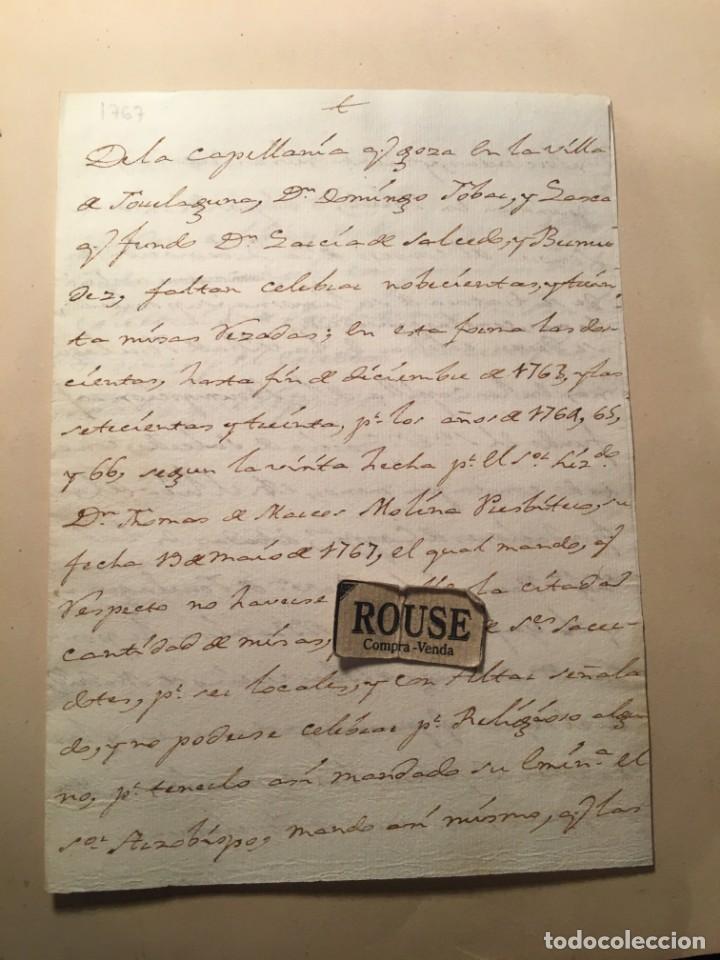 1767
+
De la capellanía q.e goza en la villa
de Torrelaguna, D.n Domingo Tobar, y Gasca
q.e fundo D.n Garcia de Salcedo, y Bermu
dez, faltan celebrar nobecientas, y trein,
ta misas Rezadas; en esta forma las dos-
cientas, hasta fin de diciembre de 1763, y las
setecientas y treinta, p.r los años de 1764, 65,
y 66, segun la visita hecha p.r el s.or Liz.do
D.n Thomas de Marcos Molina Presbitero, su
fecha 13 de Maio de 1767, el qual mando, q.e
Respecto no haverse la citada
cantidad de misas, s.res Sacer-
dotes, p.r ser locales, y con Altar señala
do, y no poderse celebrar p.r Religioso algu
no, p.r tenerlo asi mandado su Emin.a el
s.or Arzobispo, mando asi mismo, q.e las
ROUSE
Compra-Venda
todocoleccion
todocoleccion.net